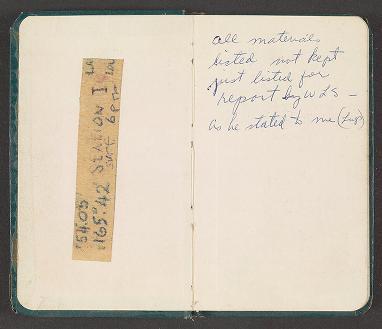 54.05'
165°42' STATION I
surf 6 PM
all materials
listed not kept
just listed for
report by WLS –
as he stated to me